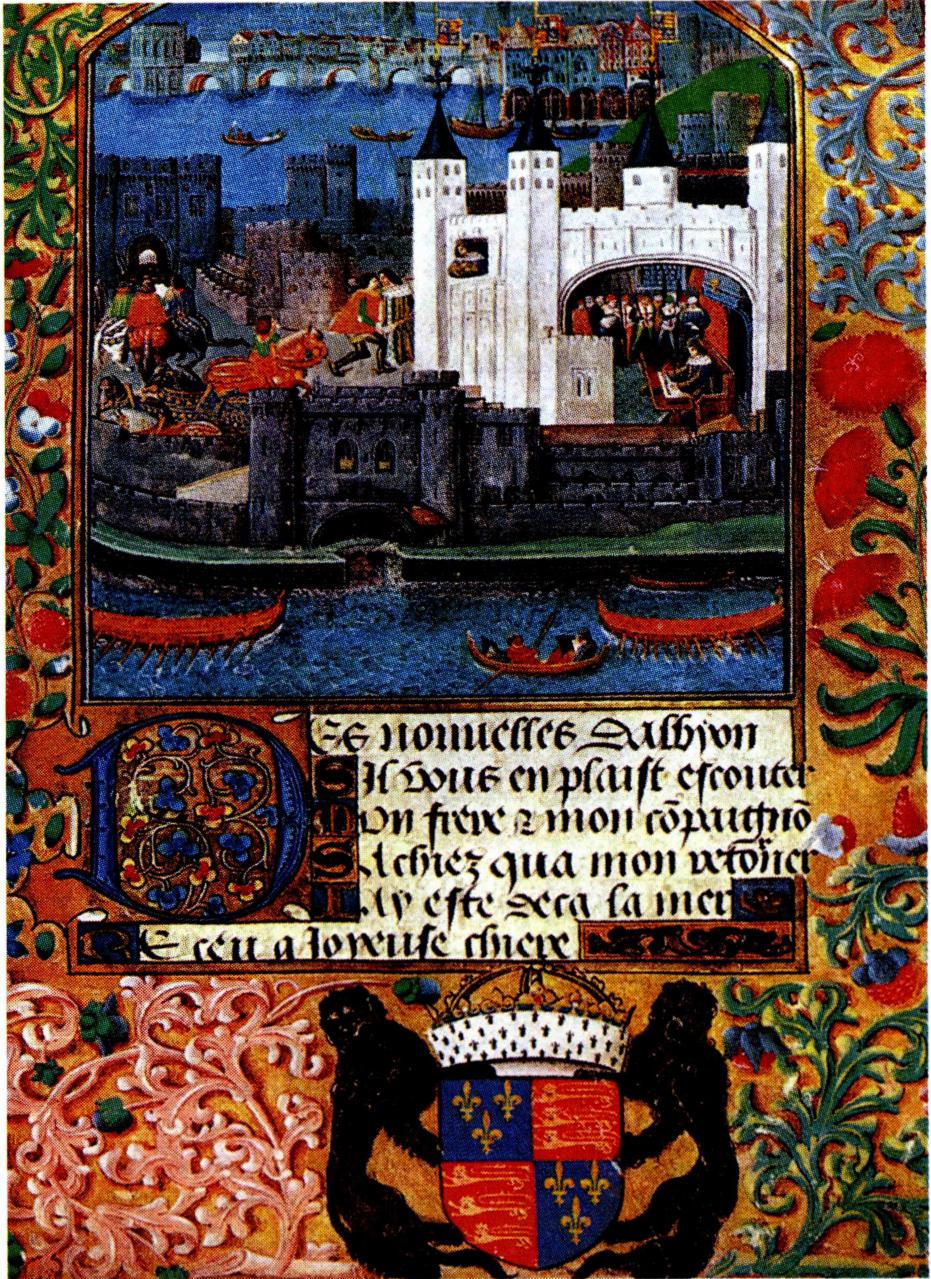 DEs nouuelles Dalbyon
SIl vous en plaist escouter
MOn frere ⁊ mon cōpaignō
SAchiez qua mon retorner
IAy este deca la mer
REceu a Joyeuse chiere